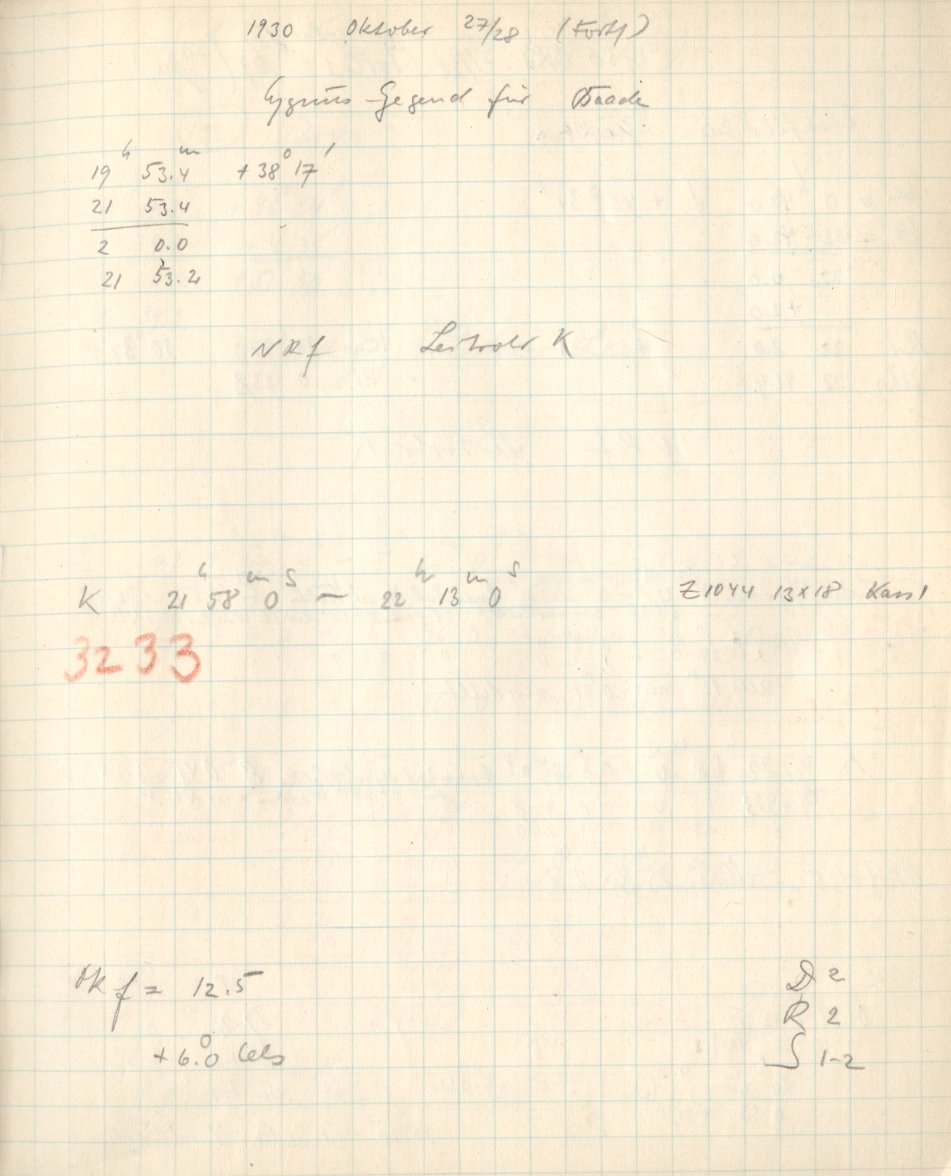 1930 Oktober 27/28 (Forts)
Cygnus-Gegend für Baade
19ʰ 53.4ᵐ +38° 17'
21 53.4
2 0.0
21 53.2
NRf Leitrohr K
K 21ʰ 58ᵐ 0ˢ — 22ʰ 13ᵐ 0ˢ Z1044 13x18 Kass 1
3233
Ok f = 12.5
+6.0° Cels
D 2
R 2
S 1-2